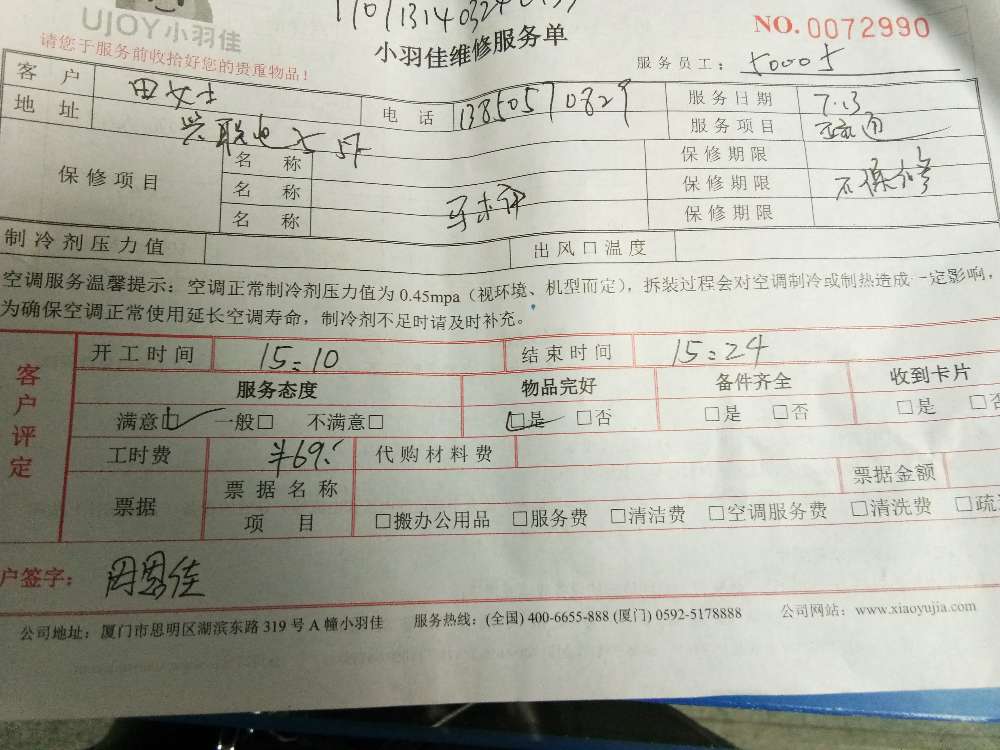 UJOY小羽佳
小羽佳维修服务单
NO. 0072990
请您于服务前收拾好您的贵重物品！
服务员工： 50005
客户 田女士 电话 13850570829 服务日期 7.13
地址 服务项目
保修项目 名称 保修期限
名称 保修期限 不保修
名称 保修期限
制冷剂压力值 出风口温度
空调服务温馨提示：空调正常制冷剂压力值为 0.45mpa（视环境、机型而定），拆装过程会对空调制冷或制热造成一定影响，
为确保空调正常使用延长空调寿命，制冷剂不足时请及时补充。
客户评定
开工时间 15:10 结束时间 15:24
服务态度 物品完好 备件齐全 收到卡片
满意☑ 一般□ 不满意□ ☑是 □否 □是 □否 □是 □否
工时费 ¥69. 代购材料费
票据 票据名称 票据金额
项目 □搬办公用品 □服务费 □清洁费 □空调服务费 □清洗费 □疏
户签字：
公司地址：厦门市思明区湖滨东路 319 号 A 幢小羽佳 服务热线：(全国) 400-6655-888 (厦门) 0592-5178888 公司网站：www.xiaoyujia.com